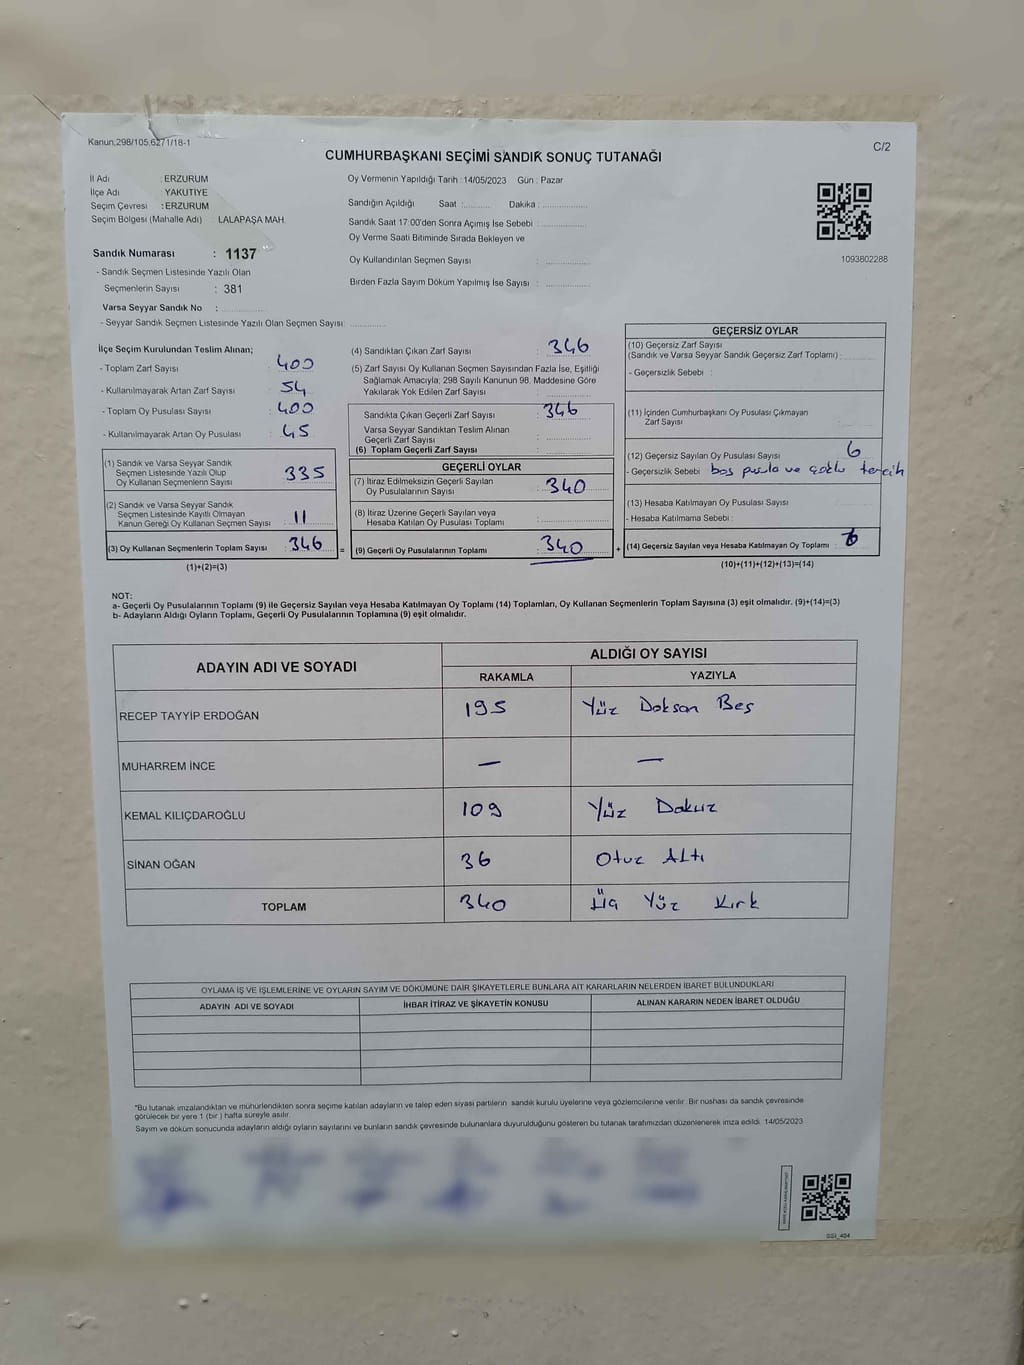 Kanun:298/105,6271/18-1
C/2
CUMHURBAŞKANI SEÇİMİ SANDIK SONUÇ TUTANAĞI
İl Adı : ERZURUM
İlçe Adı : YAKUTİYE
Seçim Çevresi : ERZURUM
Seçim Bölgesi (Mahalle Adı) : LALAPAŞA MAH.
Oy Vermenin Yapıldığı Tarih : 14/05/2023 Gün : Pazar
Sandığın Açıldığı Saat : Dakika :
Sandık Saat 17:00'den Sonra Açımış İse Sebebi :
Oy Verme Saati Bitiminde Sırada Bekleyen ve
Oy Kullandırılan Seçmen Sayısı :
Birden Fazla Sayım Döküm Yapılmış İse Sayısı :
1093802288
Sandık Numarası : 1137
- Sandık Seçmen Listesinde Yazılı Olan
Seçmenlerin Sayısı : 381
Varsa Seyyar Sandık No :
- Seyyar Sandık Seçmen Listesinde Yazılı Olan Seçmen Sayısı:
İlçe Seçim Kurulundan Teslim Alınan;
- Toplam Zarf Sayısı : 400
- Kullanılmayarak Artan Zarf Sayısı : 54
- Toplam Oy Pusulası Sayısı : 400
- Kullanılmayarak Artan Oy Pusulası : 45
(1) Sandık ve Varsa Seyyar Sandık
Seçmen Listesinde Yazılı Olup
Oy Kullanan Seçmenlerin Sayısı : 335
(2) Sandık ve Varsa Seyyar Sandık
Seçmen Listesinde Kayıtlı Olmayan
Kanun Gereği Oy Kullanan Seçmen Sayısı : 11
(3) Oy Kullanan Seçmenlerin Toplam Sayısı : 346
(1)+(2)=(3)
(4) Sandıktan Çıkan Zarf Sayısı : 346
(5) Zarf Sayısı Oy Kullanan Seçmen Sayısından Fazla İse, Eşitliği
Sağlamak Amacıyla; 298 Sayılı Kanunun 98. Maddesine Göre
Yakılarak Yok Edilen Zarf Sayısı :
Sandıkta Çıkan Geçerli Zarf Sayısı : 346
Varsa Seyyar Sandıktan Teslim Alınan
Geçerli Zarf Sayısı :
(6) Toplam Geçerli Zarf Sayısı :
GEÇERLİ OYLAR
(7) İtiraz Edilmeksizin Geçerli Sayılan
Oy Pusulalarının Sayısı : 340
(8) İtiraz Üzerine Geçerli Sayılan veya
Hesaba Katılan Oy Pusulası Toplamı :
= (9) Geçerli Oy Pusulalarının Toplamı : 340
GEÇERSİZ OYLAR
(10) Geçersiz Zarf Sayısı
(Sandık ve Varsa Seyyar Sandık Geçersiz Zarf Toplamı) :
- Geçersizlik Sebebi :
(11) İçinden Cumhurbaşkanı Oy Pusulası Çıkmayan
Zarf Sayısı :
(12) Geçersiz Sayılan Oy Pusulası Sayısı : 6
- Geçersizlik Sebebi boş pusula ve çoklu tercih
(13) Hesaba Katılmayan Oy Pusulası Sayısı :
- Hesaba Katılmama Sebebi :
+ (14) Geçersiz Sayılan veya Hesaba Katılmayan Oy Toplamı : 6
(10)+(11)+(12)+(13)=(14)
NOT:
a- Geçerli Oy Pusulalarının Toplamı (9) ile Geçersiz Sayılan veya Hesaba Katılmayan Oy Toplamı (14) Toplamları, Oy Kullanan Seçmenlerin Toplam Sayısına (3) eşit olmalıdır. (9)+(14)=(3)
b- Adayların Aldığı Oyların Toplamı, Geçerli Oy Pusulalarının Toplamına (9) eşit olmalıdır.
ADAYIN ADI VE SOYADI
ALDIĞI OY SAYISI
RAKAMLA YAZIYLA
RECEP TAYYİP ERDOĞAN 195 Yüz Doksan Beş
MUHARREM İNCE — —
KEMAL KILIÇDAROĞLU 109 Yüz Dokuz
SİNAN OĞAN 36 Otuz Altı
TOPLAM 340 Üç Yüz Kırk
OYLAMA İŞ VE İŞLEMLERİNE VE OYLARIN SAYIM VE DÖKÜMÜNE DAİR ŞİKAYETLERLE BUNLARA AİT KARARLARIN NELERDEN İBARET BULUNDUKLARI
ADAYIN ADI VE SOYADI İHBAR İTİRAZ VE ŞİKAYETİN KONUSU ALINAN KARARIN NEDEN İBARET OLDUĞU
*Bu tutanak imzalandıktan ve mühürlendikten sonra seçime katılan adayların ve talep eden siyasi partilerin sandık kurulu üyelerine veya gözlemcilerine verilir. Bir nushası da sandık çevresinde
görülecek bir yere 1 (bir ) hafta süreyle asılır.
Sayım ve döküm sonucunda adayların aldığı oyların sayılarını ve bunların sandık çevresinde bulunanlara duyurulduğunu gösteren bu tutanak tarafımızdan düzenlenerek imza edildi. 14/05/2023